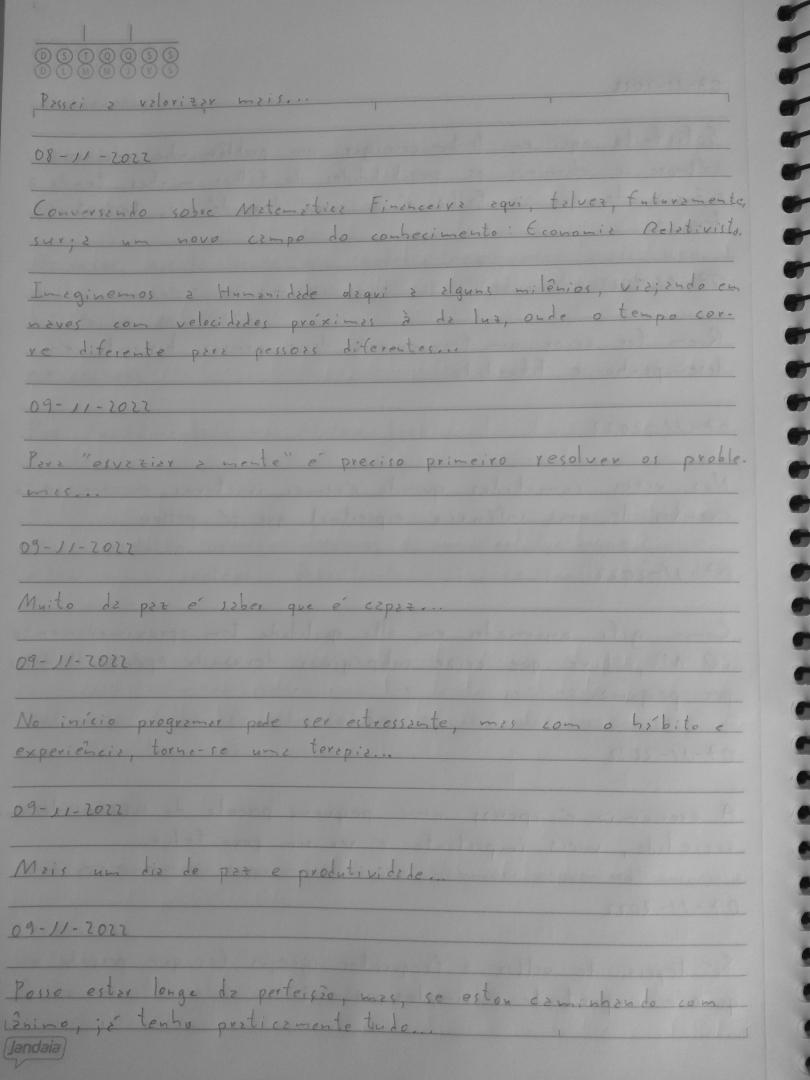 D S T Q Q S S
D L M M J V S
Passei a valorizar mais...
08-11-2022
Conversando sobre Matemática Financeira aqui, talvez, futuramente,
surja um novo campo do conhecimento: Economia Relativista.
Imaginemos a Humanidade daqui a alguns milênios, viajando em
naves com velocidades próximas à da luz, onde o tempo cor-
re diferente para pessoas diferentes...
09-11-2022
Para "esvaziar a mente" é preciso primeiro resolver os proble-
mas...
09-11-2022
Muito da paz é saber que é capaz...
09-11-2022
No início programar pode ser estressante, mas com o hábito e
experiência, torna-se uma terapia...
09-11-2022
Mais um dia de paz e produtividade...
09-11-2022
Posso estar longe da perfeição, mas, se estou caminhando com
ânimo, já tenho praticamente tudo...
Jandaia